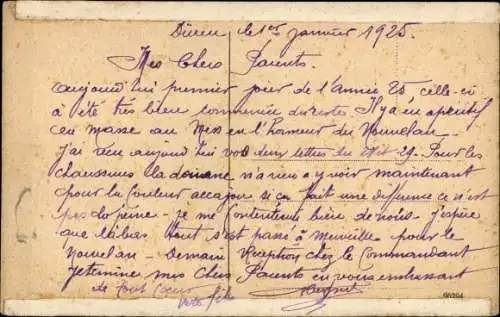 Düren le 1er janvier 1925.
Mes Chers Parents.
aujourd'hui premier jour de l'année 25 celle-ci
à été très bien commencée du reste. Il y a eu apéritif
en masse au Mess en l'honneur du Nouvel an.
J'ai reçu aujourd'hui vos deux lettres du et 29. Pour les
chaussures la douane n'a rien a y voir maintenant
pour la couleur accajou si ça fait une différence ce n'est
pas la peine - je me contenterais bien de noirs. J'espère
que là bas tout s'est passé à Merville pour le
Nouvel an - Demain Réception chez le Commandant
Je termine mes Chers Parents en vous embrassant
de tout coeur
votre fils